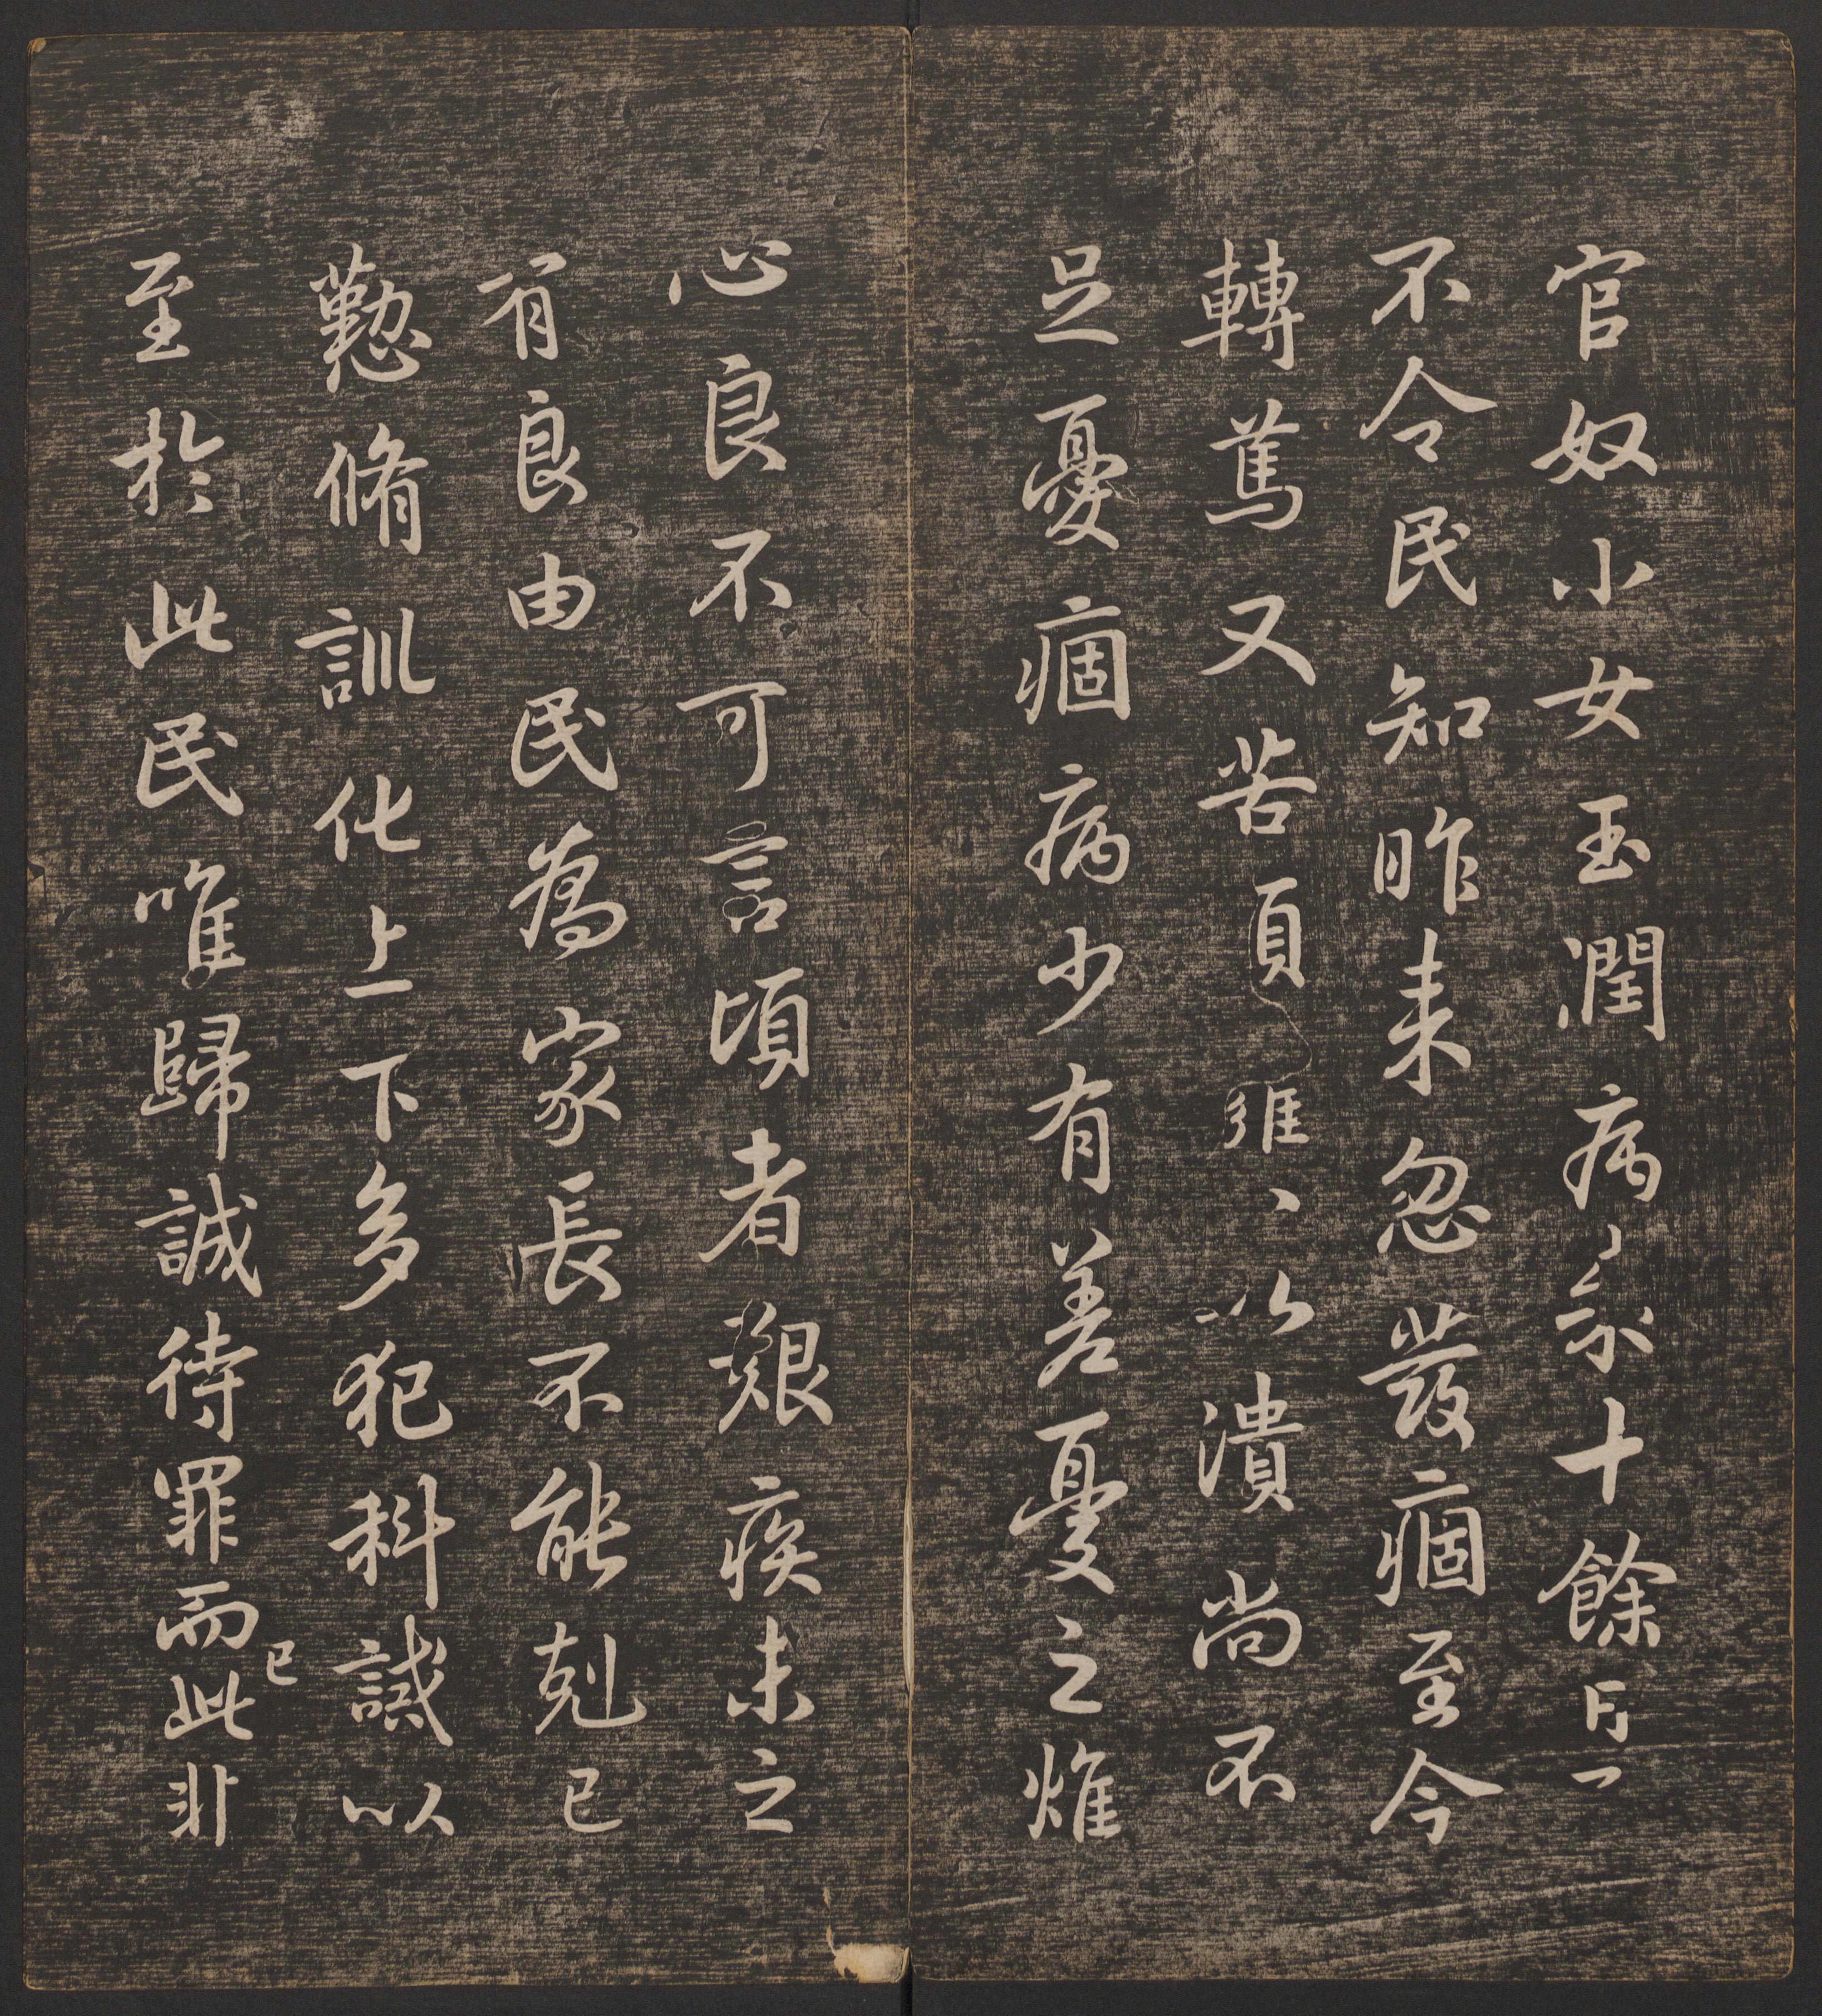 官奴小女玉潤病来十餘日
不令民知昨来忽發痼至今
轉篤又苦頭癰〻以潰尚不
足憂痼病少有差憂之燋
心良不可言頃者艱疾未之
有良由民為家長不能剋己
懃脩訓化上下多犯科誡以
至於此民唯歸誠待罪而此非
已